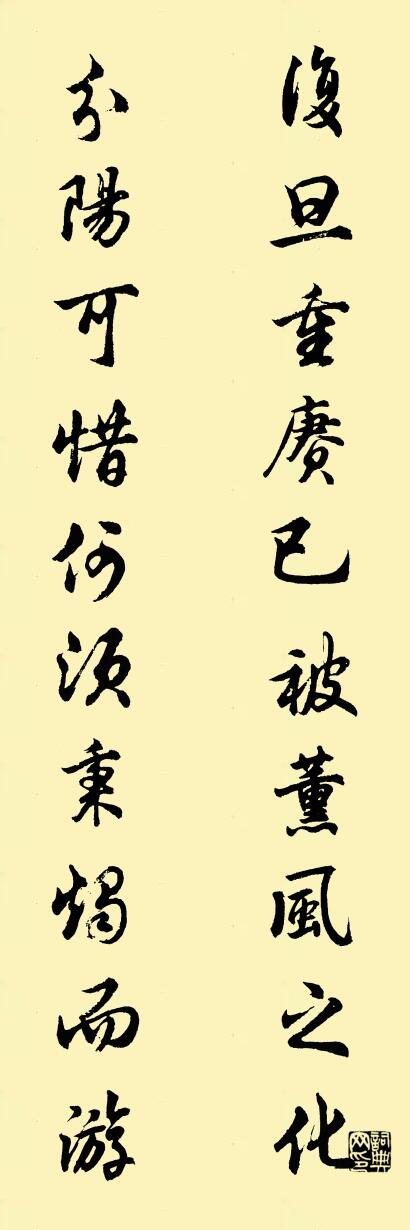 復旦重賡已被薰風之化
分陽可惜何須秉燭而游
詞典网印